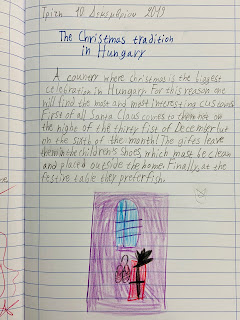 Τρίτη 10 Δεκεμβρίου 2019
The Christmas tradition
in Hungary
A country where Christmas is the biggest
celebration in Hungary. For this reason one
will find the most and most interesting customs.
First of all Santa Claus comes to them not on
the night of the thirty fist of December but
on the sixth of the month! The gifts leave
them in the children's shoes, which must be clean
and plated outside the home. Finally, at the
festive table they prefer fish.